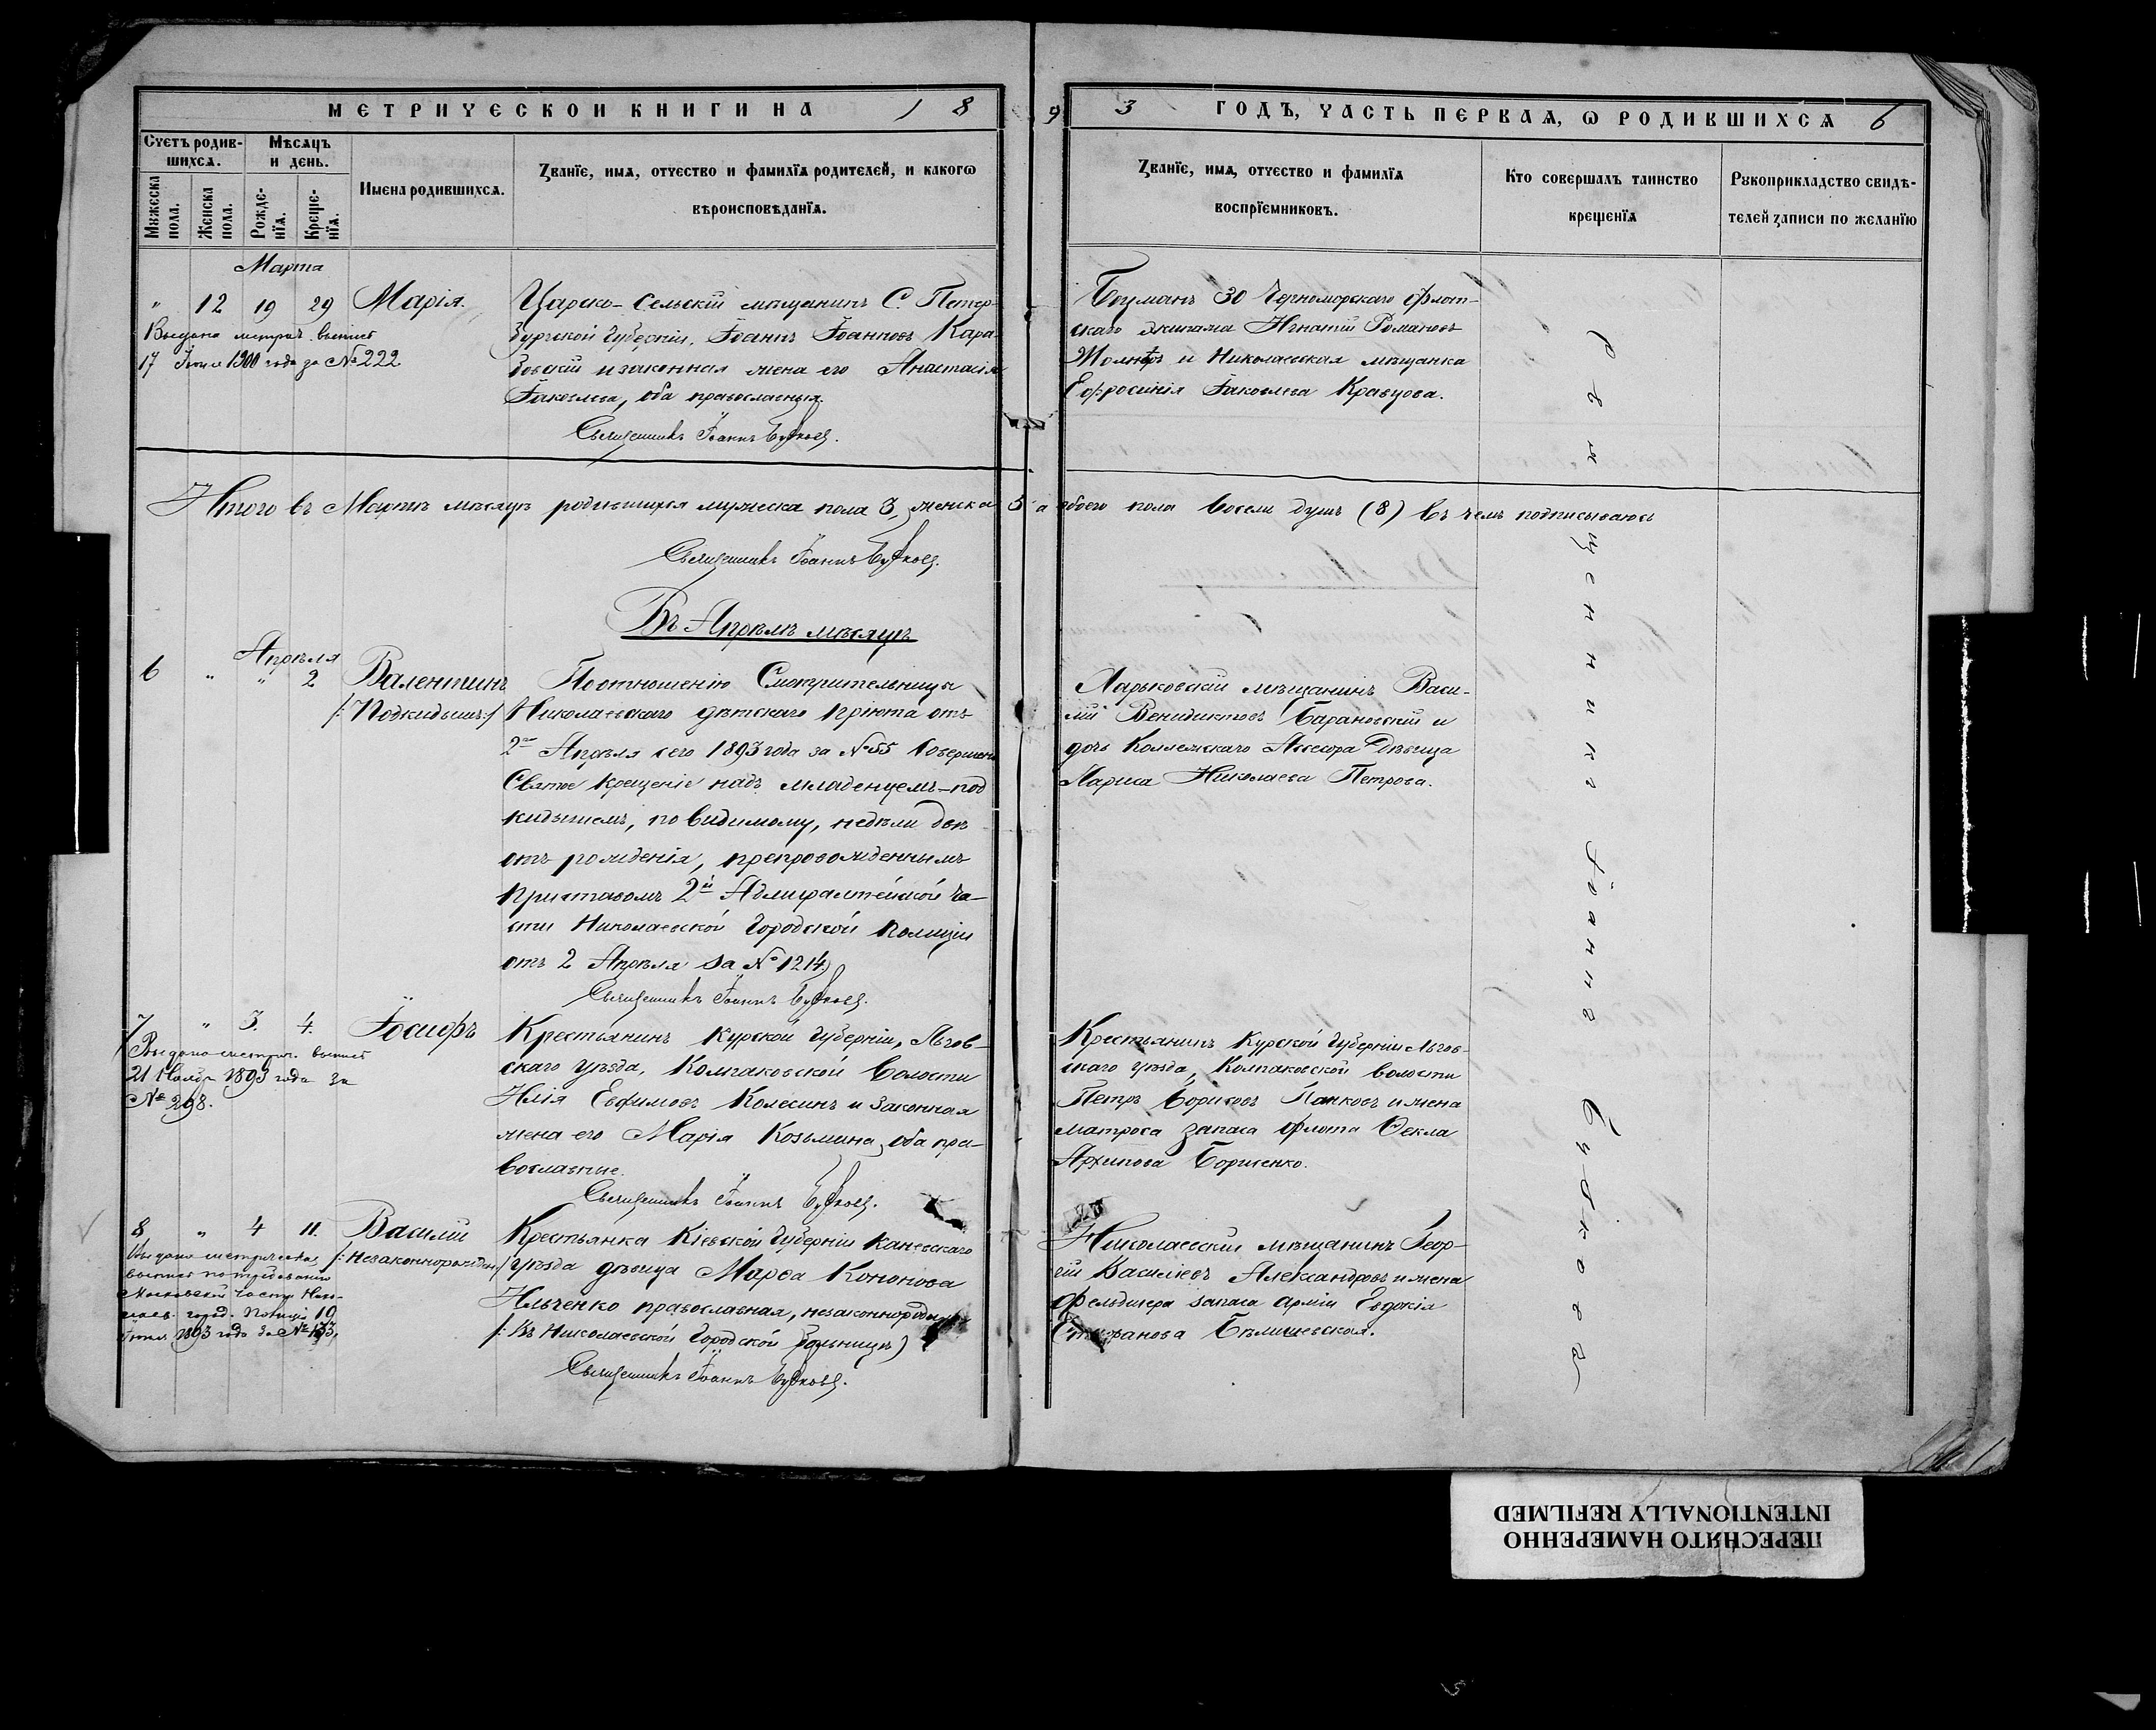 МЕТРИЧЕСКОЙ КНИГИ НА 18
93 ГОДЪ, ЧАСТЬ ПЕРВАЯ, Ѡ РОДИВШИХСЯ 6
Счетъ родившихся.
Мѣсяцъ и день.
Мужеска пола.
Женска пола.
Рожденїя.
Крещенїя.
Имена родившихся.
Званїе, имя, отчество и фамилїя родителей, и какогѡ
вѣроисповѣданїя.
Званїе, имя, отчество и фамилїя
воспрїемниковъ.
Кто совершалъ таинство
крещенїя
Рукоприкладство свидѣ-
телей записи по желанїю
Марта
" 12 19 29 Марія.
Выдана метрич. выпись
17 1900 года за № 222
Царско-Сельскій мѣщанинъ С. Петер-
бургской губерніи, Іоаннъ Іоанновъ Кара-
и законная жена его Анастасія
Іаковлева, оба православныя.
Священникъ Іоаннъ Будковъ.
Боцманъ 30 Черноморскаго флот-
скаго экипажа Игнатій Романовъ
и Николаевская мѣщанка
Ефросинія Іаковлева Кравцова.
Итого въ Мартѣ мѣсяцѣ родившихся мужеска пола 3, женска 5 а обоего пола восемь душъ (8) въ чемъ подписываюсь
Священникъ Іоаннъ Будковъ.
Въ Апрѣлѣ мѣсяцѣ
Апрѣля
6 " " 2 Валентинъ
/:Подкидышъ:/
По отношенію Смотрительницы
Николаевскаго дѣтскаго пріюта отъ
2го Апрѣля сего 1893 года за № 55 совершено
Святое крещеніе надъ младенцемъ-под
кидышемъ, по видимому, недѣли двѣ
отъ рожденія, препровожденнымъ
Приставомъ 2й Адмиралтейской ча-
сти Николаевской Городской Полиціи
отъ 2 Апрѣля за № 1214.
Священникъ Іоаннъ Будковъ.
Харьковскій мѣщанинъ Васи-
лій Венидиктовъ Барановскій и
дочь Коллежскаго Ассесора Дѣвица
Лариса Николаева Петрова.
7 " 3. 4. Іосифъ
Выдана метрич. выпись
21 Ноябр 1893 года за
№ 298.
Крестьянинъ Курской губерніи, Льгов-
скаго уѣзда, Колпаковской волости
Илія Евфимовъ Колесинъ и законная
жена его Марія Козьмина, оба пра-
вославные.
Священникъ Іоаннъ Будковъ.
Крестьянинъ Курской губерніи Льгов-
скаго уѣзда, Колпаковской волости
Петръ Борисовъ Панковъ и жена
матроса запаса флота Ѳекла
Архипова Борисенко.
8 " 4 11. Василій
/:Незаконнорожден:/
Выдана метрическая
выпись по требованію
Московской части Ник-
олаев. город. Полиціи 10
1893 года за № 133
Крестьянка Кіевской губерніи Каневскаго
уѣзда дѣвица Марѳа Кононова
Ильченко православная, незаконнорожден
/:Въ Николаевской Городской больницѣ)
Священникъ Іоаннъ Будковъ.
Николаевскій мѣщанинъ Геор-
гій Василіевъ Александровъ и жена
фельдшера запаса арміи Евдокія
Стефанова Бѣлишевская.
Священникъ Іоаннъ Будковъ
ПЕРЕСНЯТО НАМЕРЕННО
INTENTIONALLY REFILMED